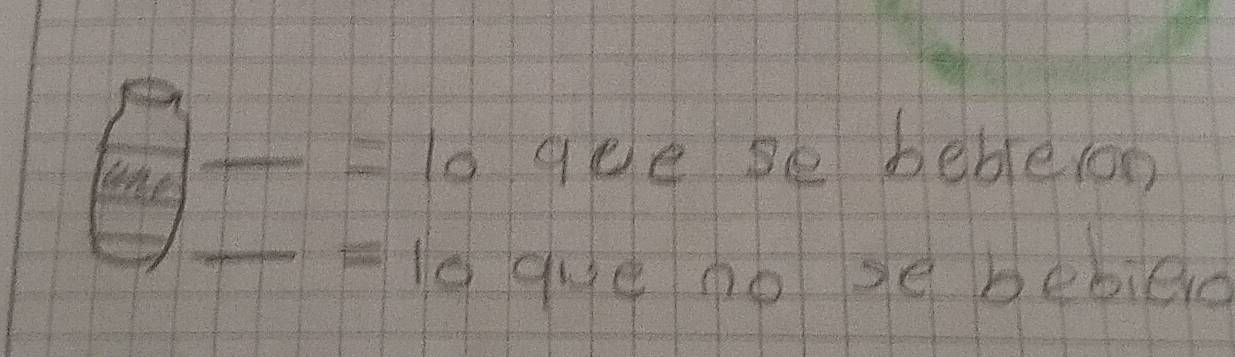 — = lo que se bebieron
— = lo que no se bebiero